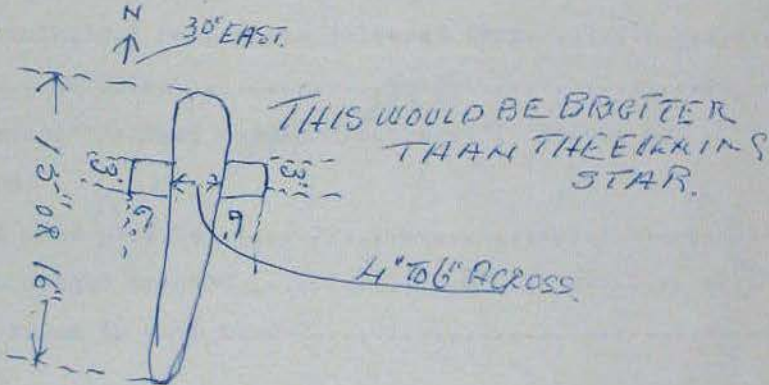 N
30° EAST.
THIS WOULD BE BRIGTTER
THAN THE EVENING
STAR.
3"
3"
6"
6"
15" OR 16"
4" TO 6" ACROSS.